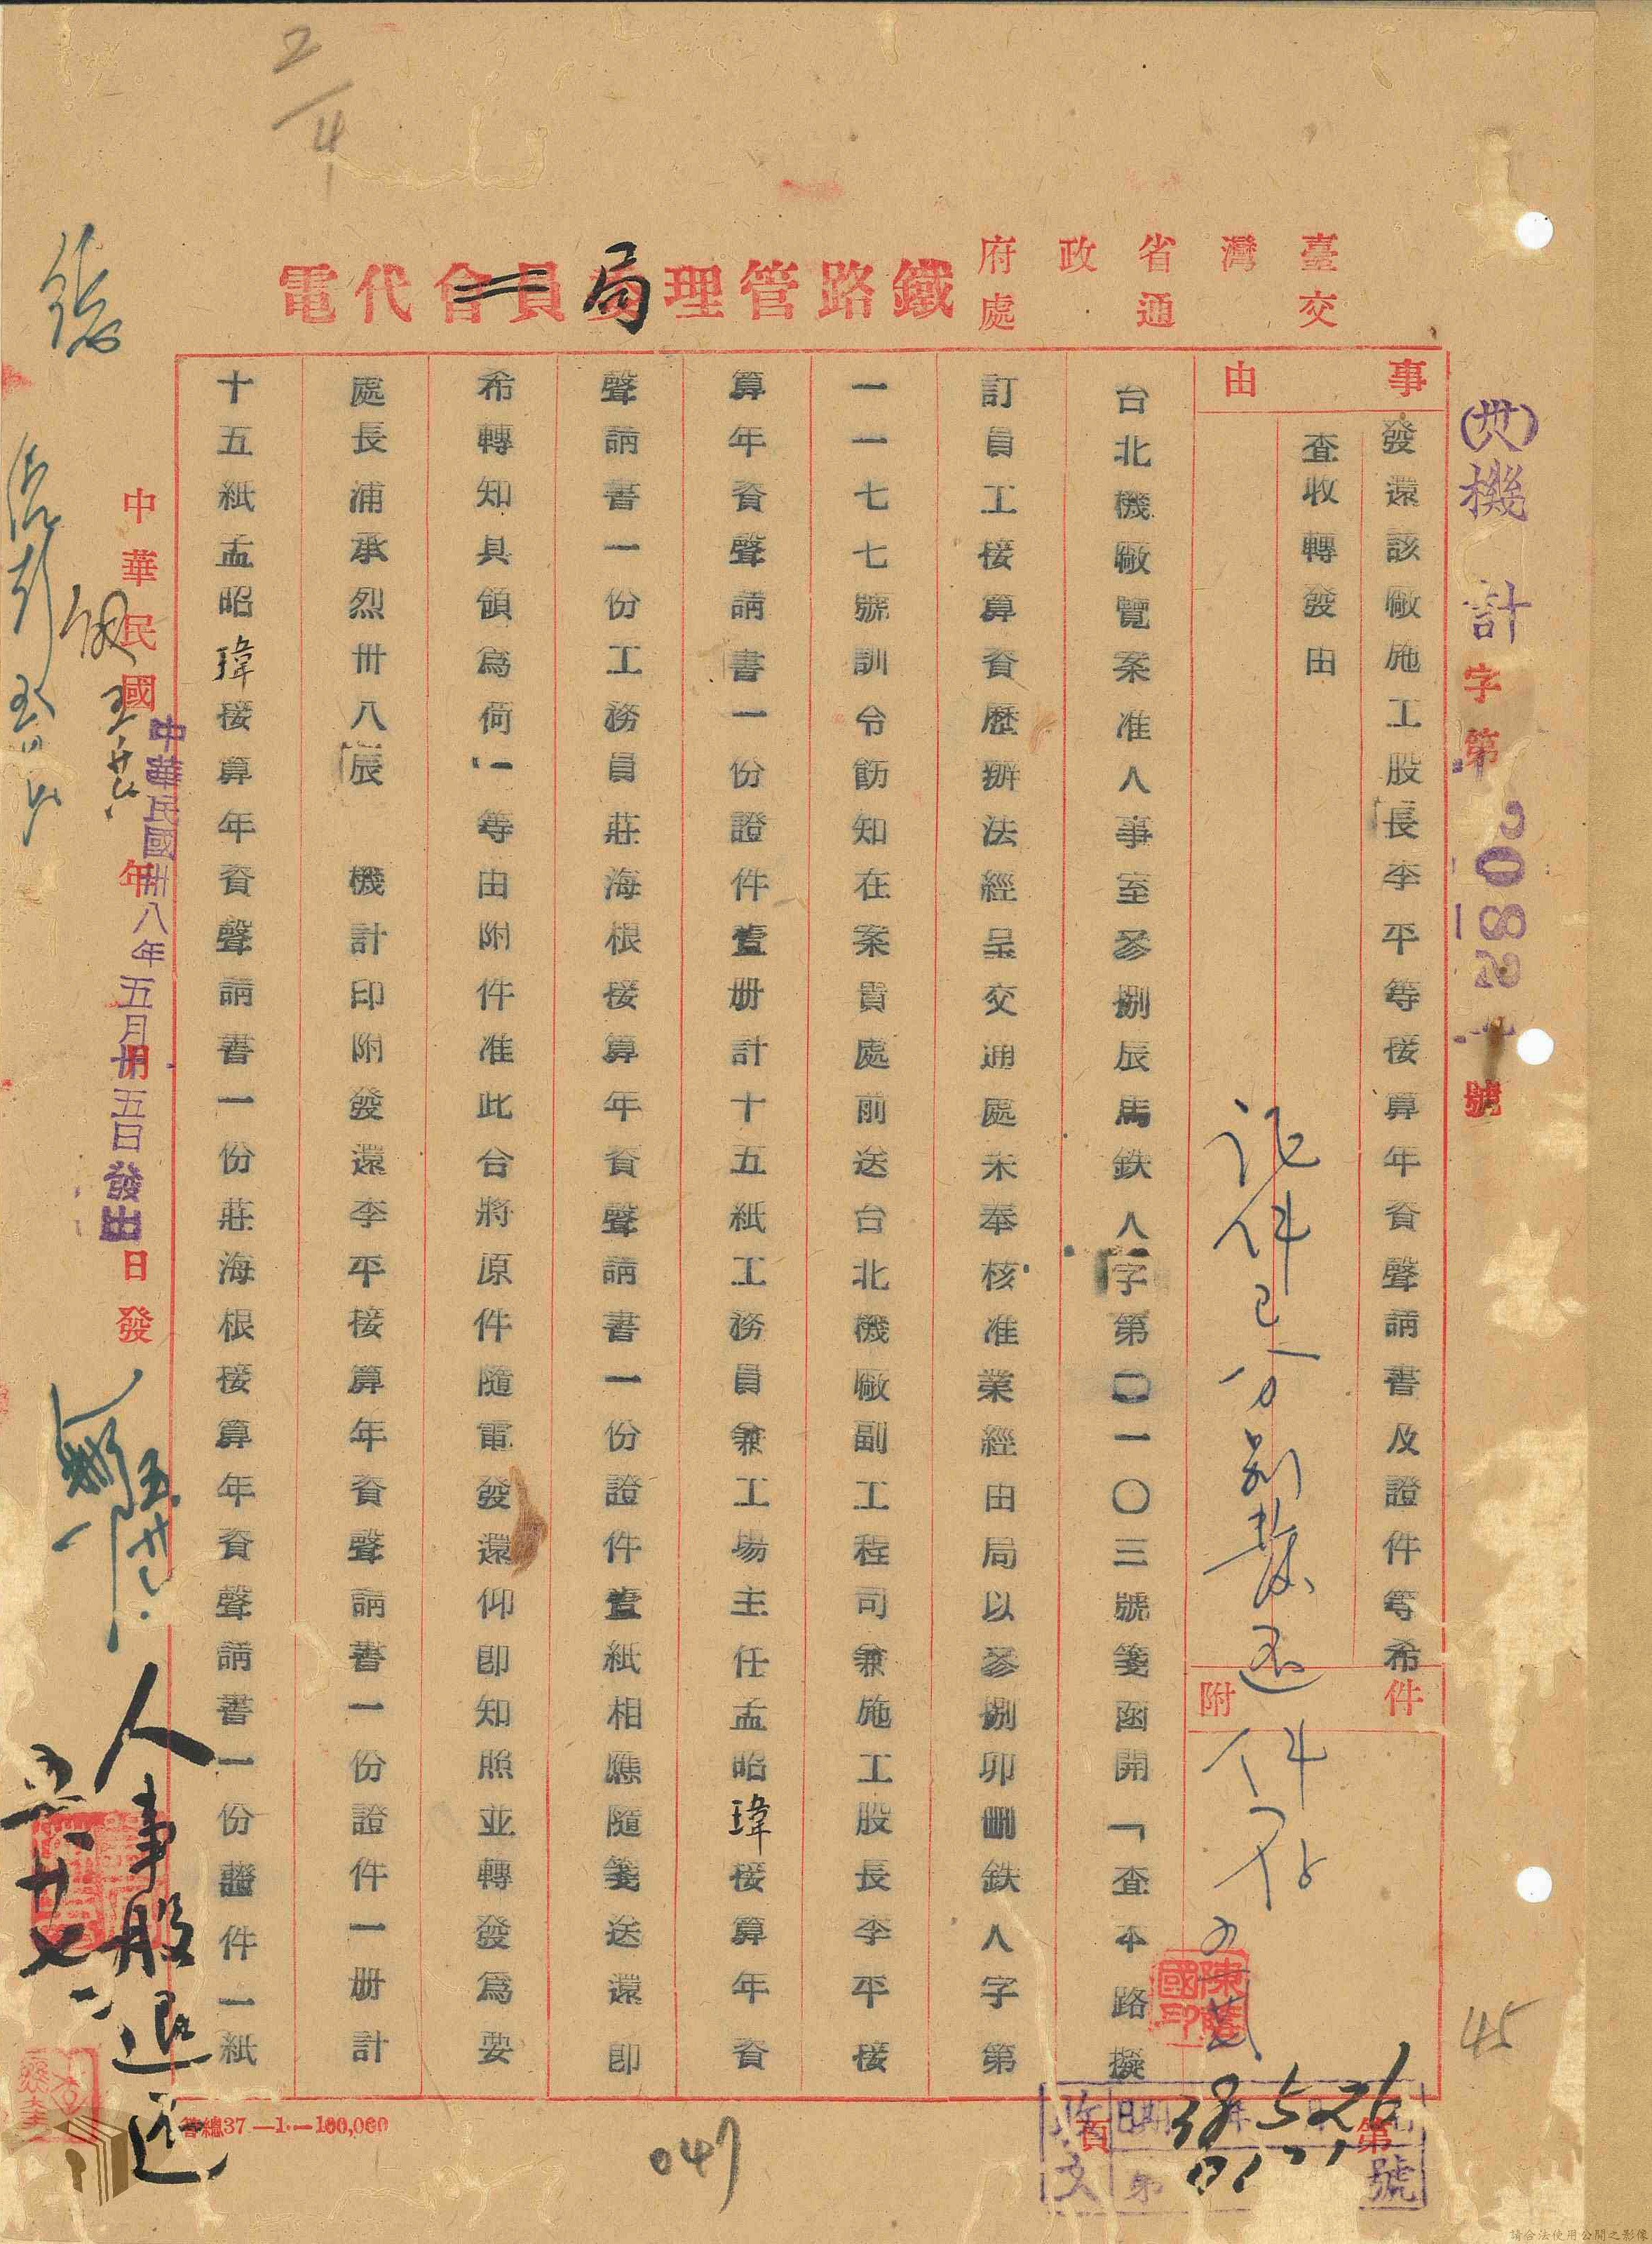 2/4
臺灣省政府
交通處
鐵路管理委員會代電
局
事由
發還該廠施工股長李平等接算年資聲請書及證件等希
查收轉發由
附件
證件已分別發還
件存
(卅八)機計字第20821號
台北機廠覽案准人事室參捌辰馬鉄人字第〇一〇三號箋函開「查本路擬
訂員工接算資歷辦法經呈交通處未奉核准業經由局以參捌卯刪鉄人字第
一一七七號訓令飭知在案貴處前送台北機廠副工程司兼施工股長李平接
算年資聲請書一份證件壹册計十五紙工務員兼工場主任孟昭瑋接算年資
聲請書一份工務員莊海根接算年資聲請書一份證件壹紙相應隨箋送還即
希轉知具領爲荷」等由附件准此合將原件隨電發還仰即知照並轉發爲要
處長浦承烈卅八辰 機計印附發還李平接算年資聲請書一份證件一册計
十五紙孟昭瑋接算年資聲請書一份莊海根接算年資聲請書一份證件一紙
中華民國 年 月 日發
中華民國卅八年五月廿五日發出
人事股退還
五廿七
收文 日期 38 5 26
第 號
第 頁
045
047
答總37—1.—100,000
請合法使用公開之影像